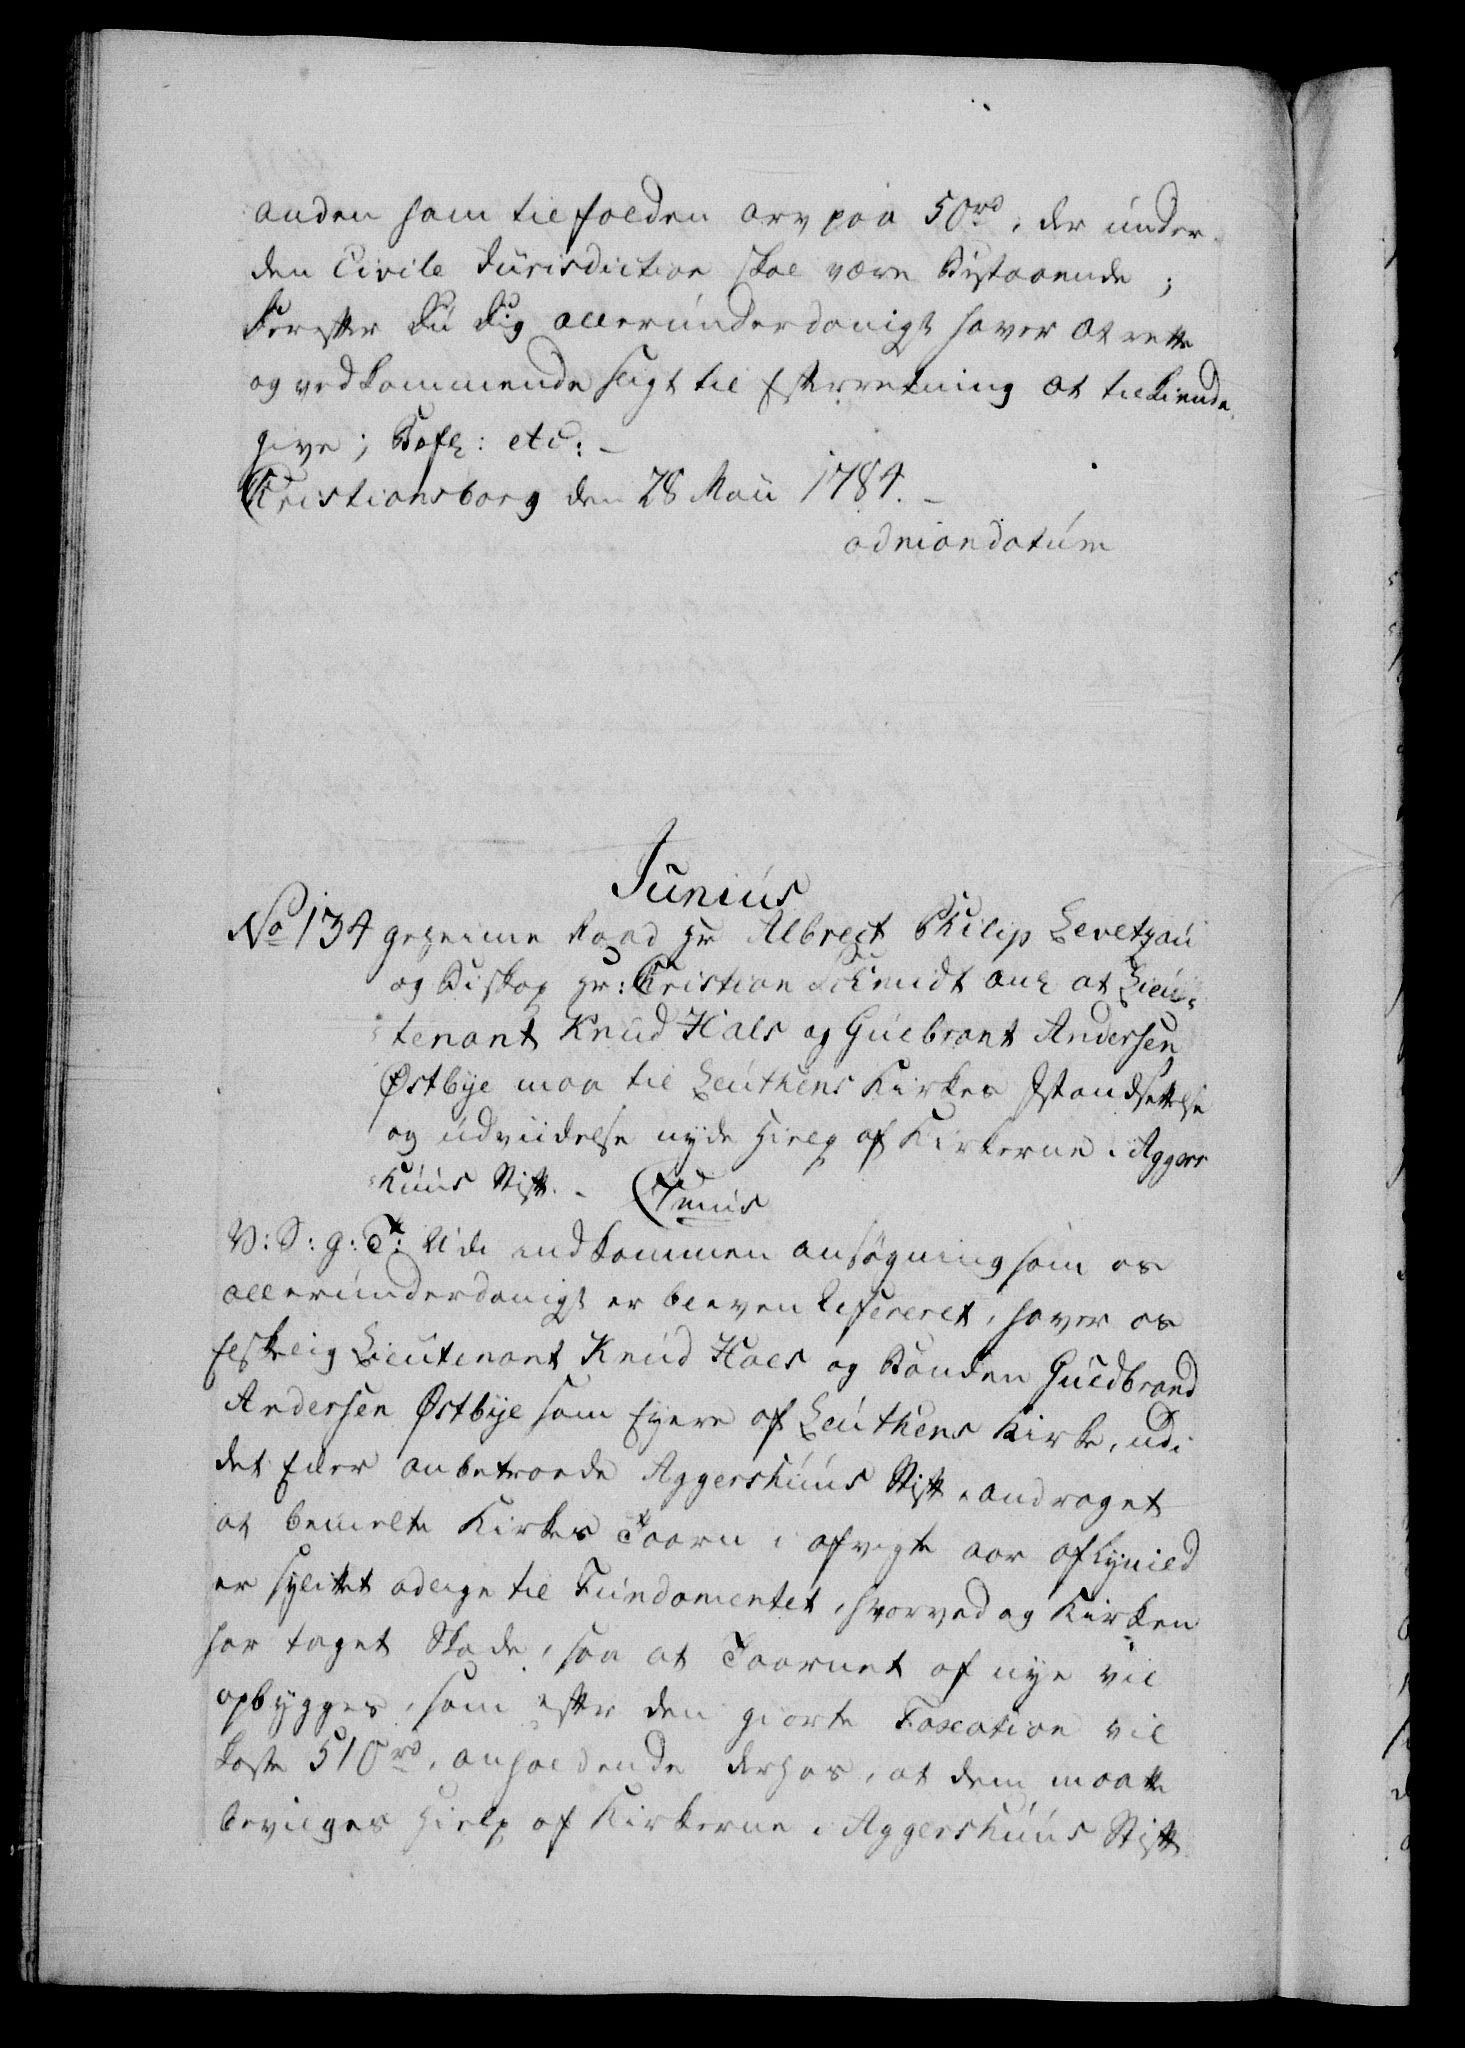 anden ham tilfalden arv paa 50rd, der under
den Civile Jurisdiction skal være Bestaaende;
Derefter Du Dig allerunderdanigst haver at rette
og vedkommende sligt til Efterretning at tilkiende
give; Befh: etc: –
Christiansborg den 28 Maii 1784. –
admandatum
Junius
No 134 geheime Raad Hr Albrect Philip Levetzau
og Biskop Hr: Christian Schmidt anl at Lieu-
tenant Knud Hals og Gulbrant Andersen
Østbye maa til Leuthens Kirkes Istandsettelse
og udviidelse nyde Hielp af Kirkerne i Aggers
huus Stift. – Junius
V: S: g: T: Udi indkommen ansøgning som os
allerunderdanigst er bleven Refereret, haver os
Elskelig Lieutenant Knud Hals og Bonden Guldbrand
Andersen Østbye som Eyere af Leuthens Kirke, udi
det Eder anbetroede Aggershuus Stift, andraget
at bemelte Kirkes Taarn i afvigte aar af Lynild
er splittet adlige til Fundamentet, hvorved og Kirken
har taget Skade, saa at Taarnet af nye vil
opbygges, som efter den giorte Taxation vil
koste 510rd, anholdende derhos, at dem maatte
bevilges Hielp af Kirkerne i Aggershuus Stift